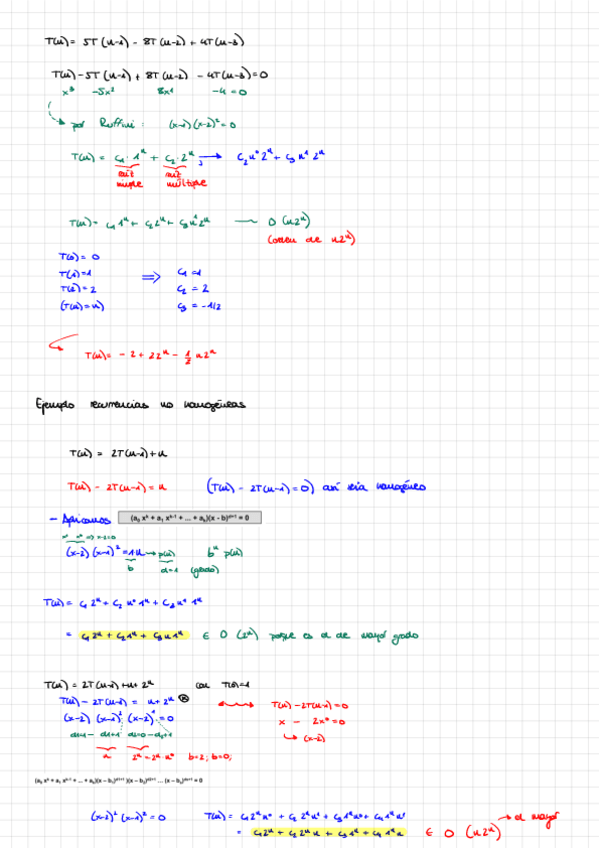 T(n) = 5T(n-1) - 8T(n-2) + 4T(n-3)
T(n) - 5T(n-1) + 8T(n-2) - 4T(n-3) = 0
x³ -5x² 8x¹ -4 = 0
por Ruffini: (x-1)(x-2)² = 0
T(n) = c₁·1ⁿ + c₂·2ⁿ → c₂n⁰2ⁿ + c₃n¹2ⁿ
raíz raíz
simple múltiple
T(n) = c₁1ⁿ + c₂2ⁿ + c₃n¹2ⁿ — O(n2ⁿ)
(orden de n2ⁿ)
T(0) = 0
T(1) = 1 ⇒ c₁ =
T(2) = 2 c₂ = 2
(T(n) = n) c₃ = -1/2
T(n) = -2 + 22ⁿ - 1/2 n2ⁿ
Ejemplo recurrencias no homogéneas
T(n) = 2T(n-1) + n
T(n) - 2T(n-1) = n (T(n) - 2T(n-1) = 0) así sería homogéneo
- Aplicamos (a₀ xᵏ + a₁ xᵏ⁻¹ + ... + aₖ)(x - b)ᵈ⁺¹ = 0
(x-2)(x-1)² = 1·n → p(n) bⁿ p(n)
b d=1 (grado)
T(n) = c₁2ⁿ + c₂n⁰1ⁿ + c₃n¹1ⁿ
= c₁2ⁿ + c₂1ⁿ + c₃n1ⁿ ∈ O(2ⁿ) porque es el de mayor grado
T(n) = 2T(n-1) + n + 2ⁿ con T(0)=1
T(n) - 2T(n-1) = n + 2ⁿ T(n) - 2T(n-1) = 0
(x-2)(x-1)²(x-2)¹ = 0 x - 2x⁰ = 0
(x-2)
n 2ⁿ = 2ⁿ·n⁰ b=2; b=0;
(a₀ xᵏ + a₁ xᵏ⁻¹ + ... + aₖ)(x - b₁)ᵈ¹⁺¹(x - b₂)ᵈ²⁺¹ ... (x - bₛ)ᵈˢ⁺¹ = 0
(x-2)²(x-1)² = 0 T(n) = c₁2ⁿn⁰ + c₂2ⁿn¹ + c₃1ⁿn⁰ + c₄1ⁿn¹ → el mayor
= c₁2ⁿ + c₂2ⁿn + c₃1ⁿ + c₄1ⁿn ∈ O(n2ⁿ)